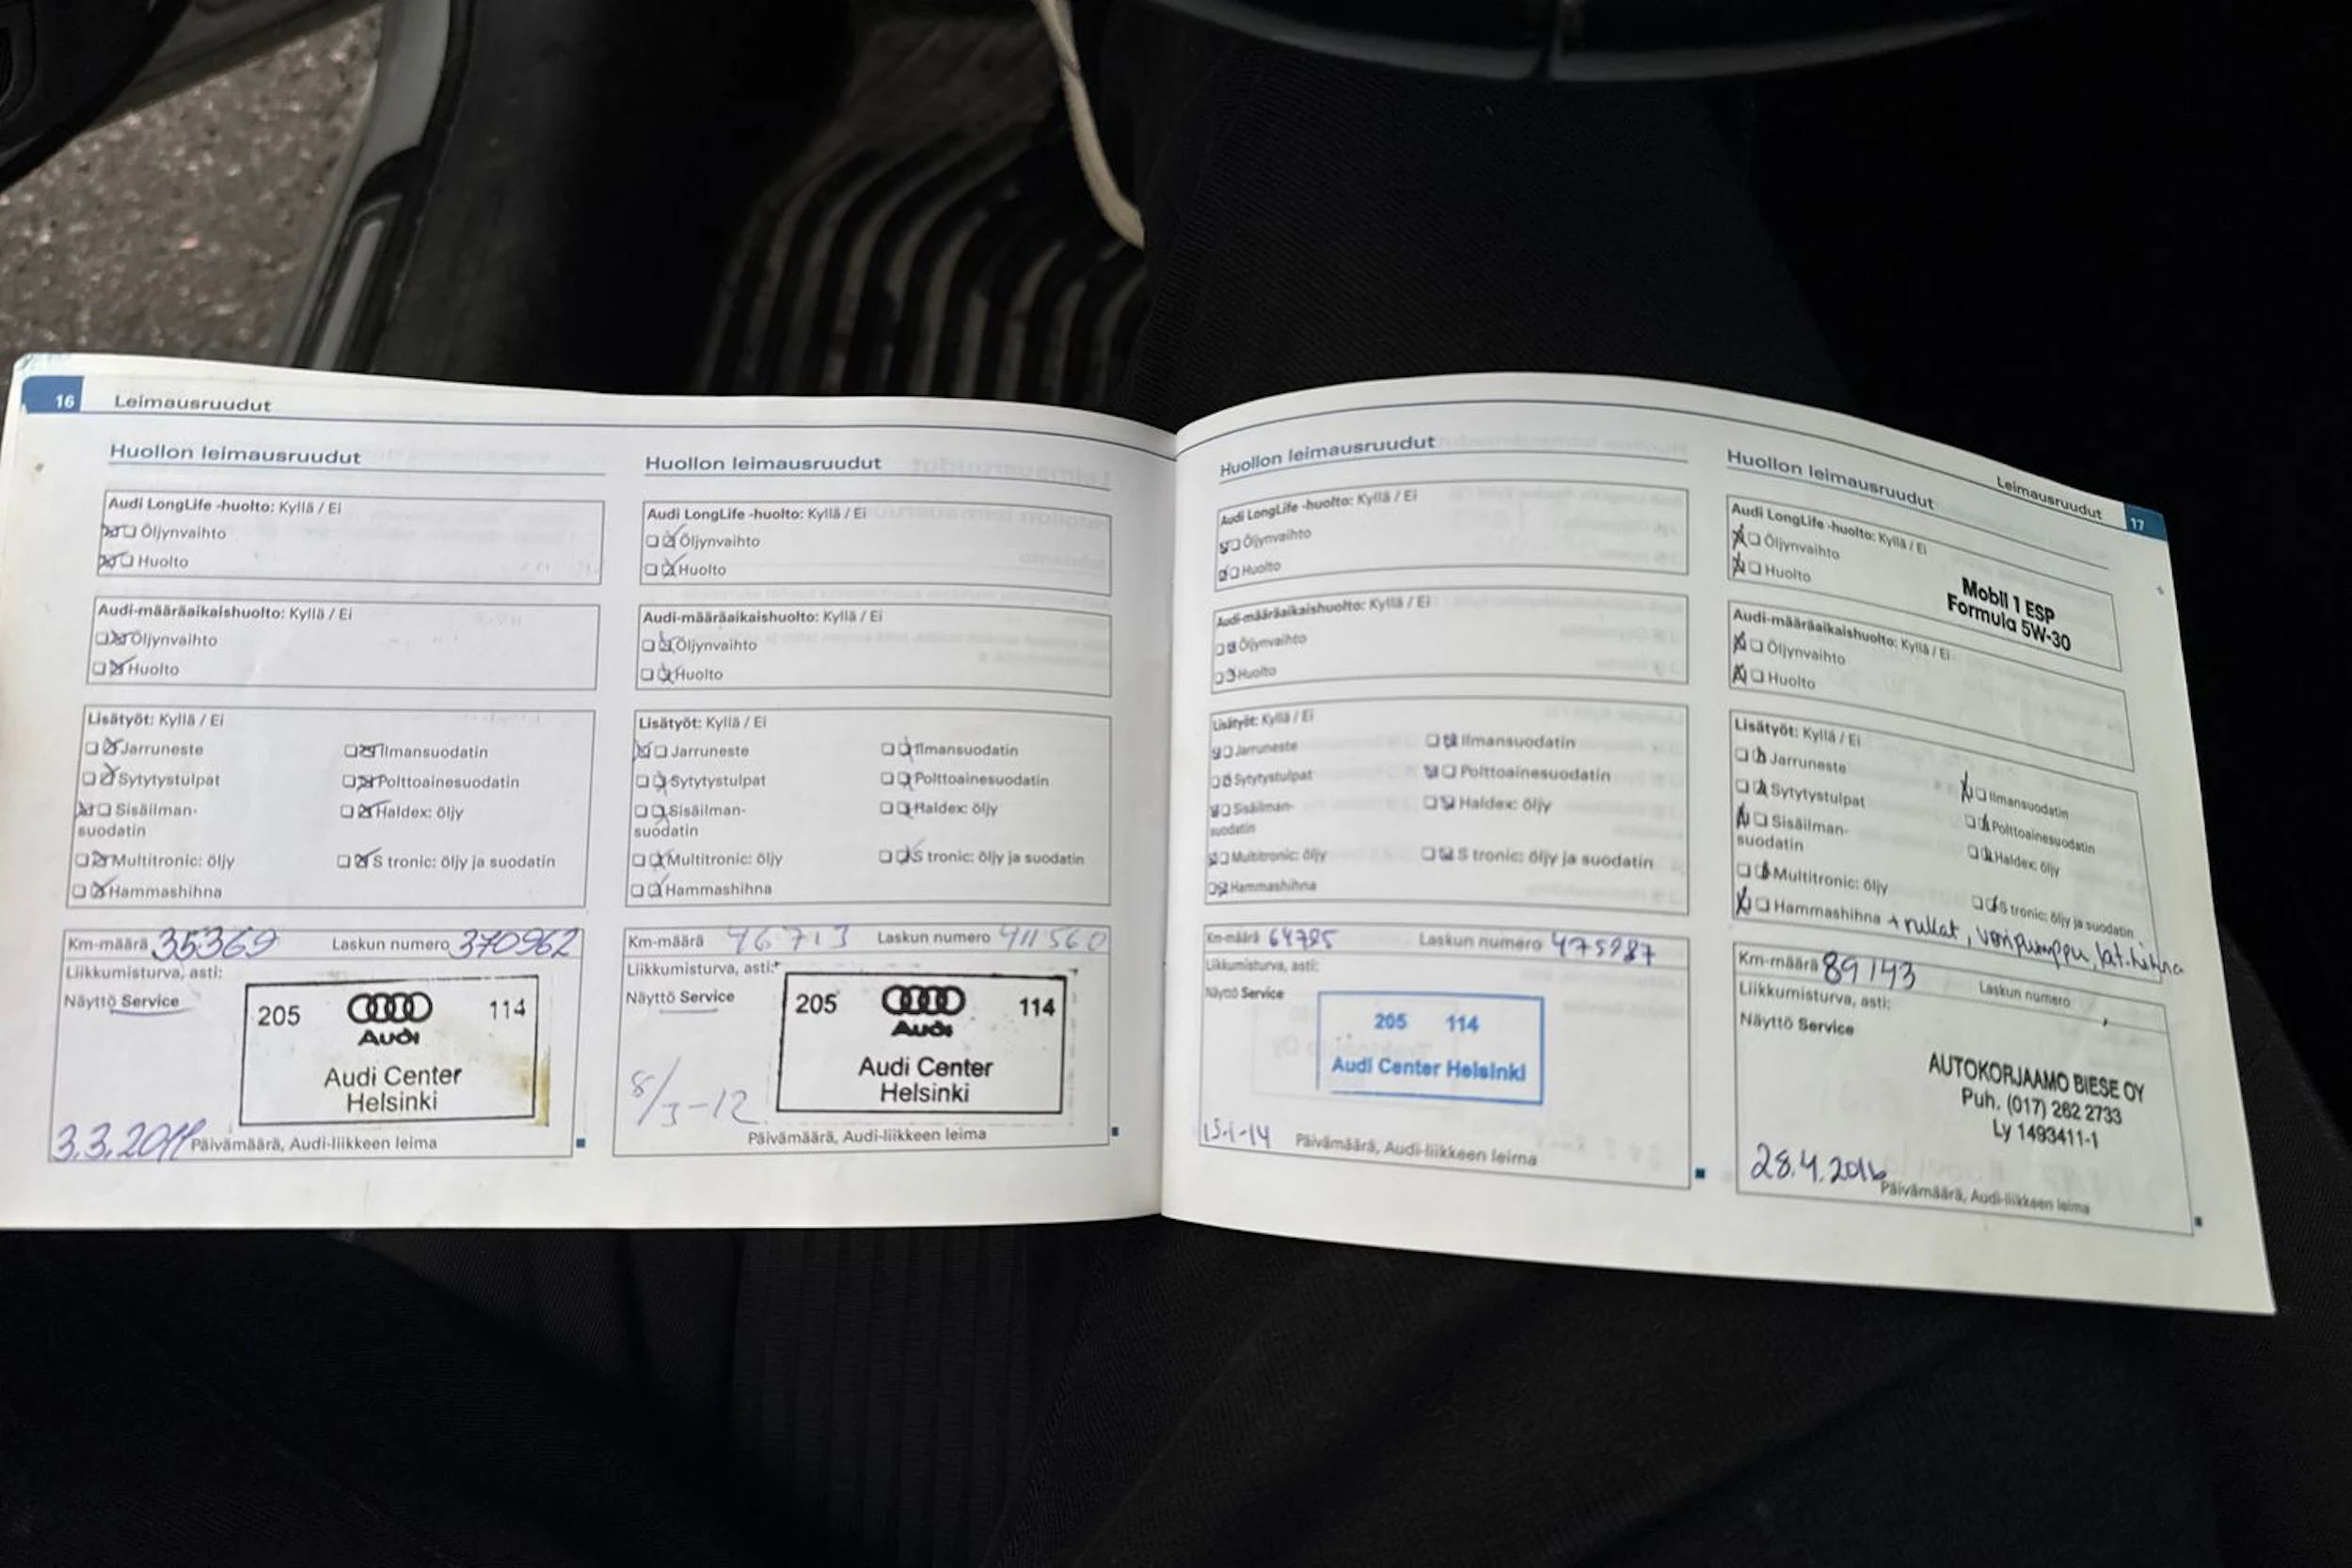 16 Leimausruudut
Huollon leimausruudut
Audi LongLife -huolto: Kyllä / Ei
Öljynvaihto
Huolto
Audi-määräaikaishuolto: Kyllä / Ei
Öljynvaihto
Huolto
Lisätyöt: Kyllä / Ei
Jarruneste
Ilmansuodatin
Sytytystulpat
Polttoainesuodatin
Sisäilman-
suodatin
Haldex: öljy
Multitronic: öljy
S tronic: öljy ja suodatin
Hammashihna
Km-määrä 35369 Laskun numero 370962
Liikkumisturva, asti:
Näyttö Service
205 114
Audi
Audi Center
Helsinki
3.3.2011 Päivämäärä, Audi-liikkeen leima
Huollon leimausruudut
Audi LongLife -huolto: Kyllä / Ei
Öljynvaihto
Huolto
Audi-määräaikaishuolto: Kyllä / Ei
Öljynvaihto
Huolto
Lisätyöt: Kyllä / Ei
Jarruneste
Ilmansuodatin
Sytytystulpat
Polttoainesuodatin
Sisäilman-
suodatin
Haldex: öljy
Multitronic: öljy
S tronic: öljy ja suodatin
Hammashihna
Km-määrä 46713 Laskun numero 411560
Liikkumisturva, asti:
Näyttö Service
205 114
Audi
Audi Center
Helsinki
8/3-12
Päivämäärä, Audi-liikkeen leima
Leimausruudut 17
Huollon leimausruudut
Audi LongLife -huolto: Kyllä / Ei
Öljynvaihto
Huolto
Audi-määräaikaishuolto: Kyllä / Ei
Öljynvaihto
Huolto
Lisätyöt: Kyllä / Ei
Jarruneste
Ilmansuodatin
Sytytystulpat
Polttoainesuodatin
Sisäilman-
suodatin
Haldex: öljy
Multitronic: öljy
S tronic: öljy ja suodatin
Hammashihna
Km-määrä 64785 Laskun numero 475987
Liikkumisturva, asti:
Näyttö Service
205 114
Audi Center Helsinki
15-1-14 Päivämäärä, Audi-liikkeen leima
Huollon leimausruudut
Audi LongLife -huolto: Kyllä / Ei
Öljynvaihto
Huolto
Mobil 1 ESP
Formula 5W-30
Audi-määräaikaishuolto: Kyllä / Ei
Öljynvaihto
Huolto
Lisätyöt: Kyllä / Ei
Jarruneste
Ilmansuodatin
Sytytystulpat
Polttoainesuodatin
Sisäilman-
suodatin
Haldex: öljy
Multitronic: öljy
S tronic: öljy ja suodatin
Hammashihna + rullat, vesipumppu, lat.hihna
Km-määrä 89143 Laskun numero
Liikkumisturva, asti:
Näyttö Service
AUTOKORJAAMO BIESE OY
Puh. (017) 262 2733
Ly 1493411-1
28.4.2016 Päivämäärä, Audi-liikkeen leima